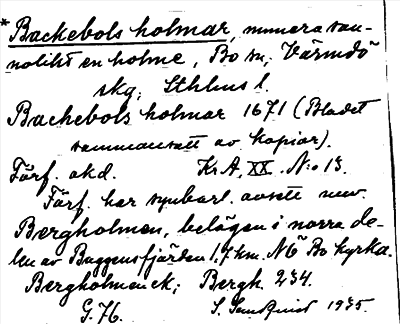 * Backebols holmar, numera san-
nolikt en holme, Bo sn, Värmdö
skg, Sthlms l.
Bachebols holmar 1671 (Bladet
sammansatt av kopior).
Förf. okd. Kr A. XX. N:o 13.
Förf. har synbarl. avsett nuv.
Bergholmen, belägen i norra de-
len av Baggensfjärden 1,7 km. NÖ Bo kyrka.
Bergholmen ek; Bergh. 234.
G. 76. S. 1935.